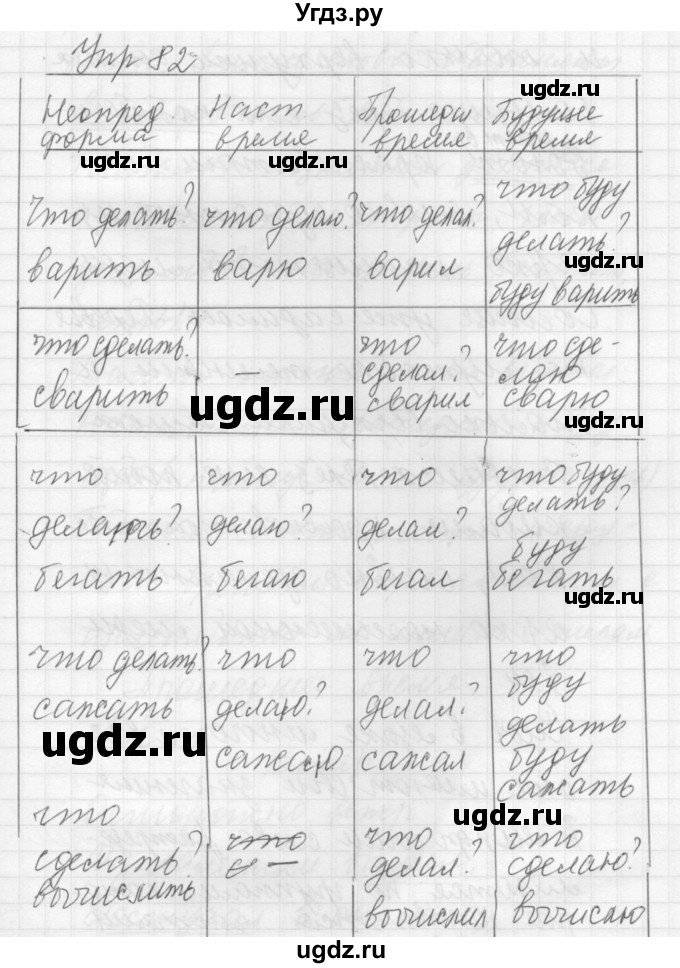 Угдз.ру
Упр 82
Неопред. форма
Наст время
Прошедш время
Будущее время
ugdz.ru
ugdz.ru
ugdz.ru
Что делать?
варить
что делаю?
варю
что делал?
варил
что буду
делать?
ugdz.ru
буду варить
что сделать?
сварить
—
что
сделал?
сварил
что сде-
лаю
сварю
ugdz.ru
ugdz.ru
что
делать?
бегать
что
делаю?
бегаю
что
делал?
бегал
что буду
делать?
буду
бегать
ugdz.ru
что делать?
сажать
что
делаю?
сажаю
что
делал?
сажал
что
буду
делать
буду
сажать
ugdz.ru
что
сделать?
вычислить
что
—
что
делал?
вычислил
что
сделаю?
вычислю
ugdz.ru
ugdz.ru